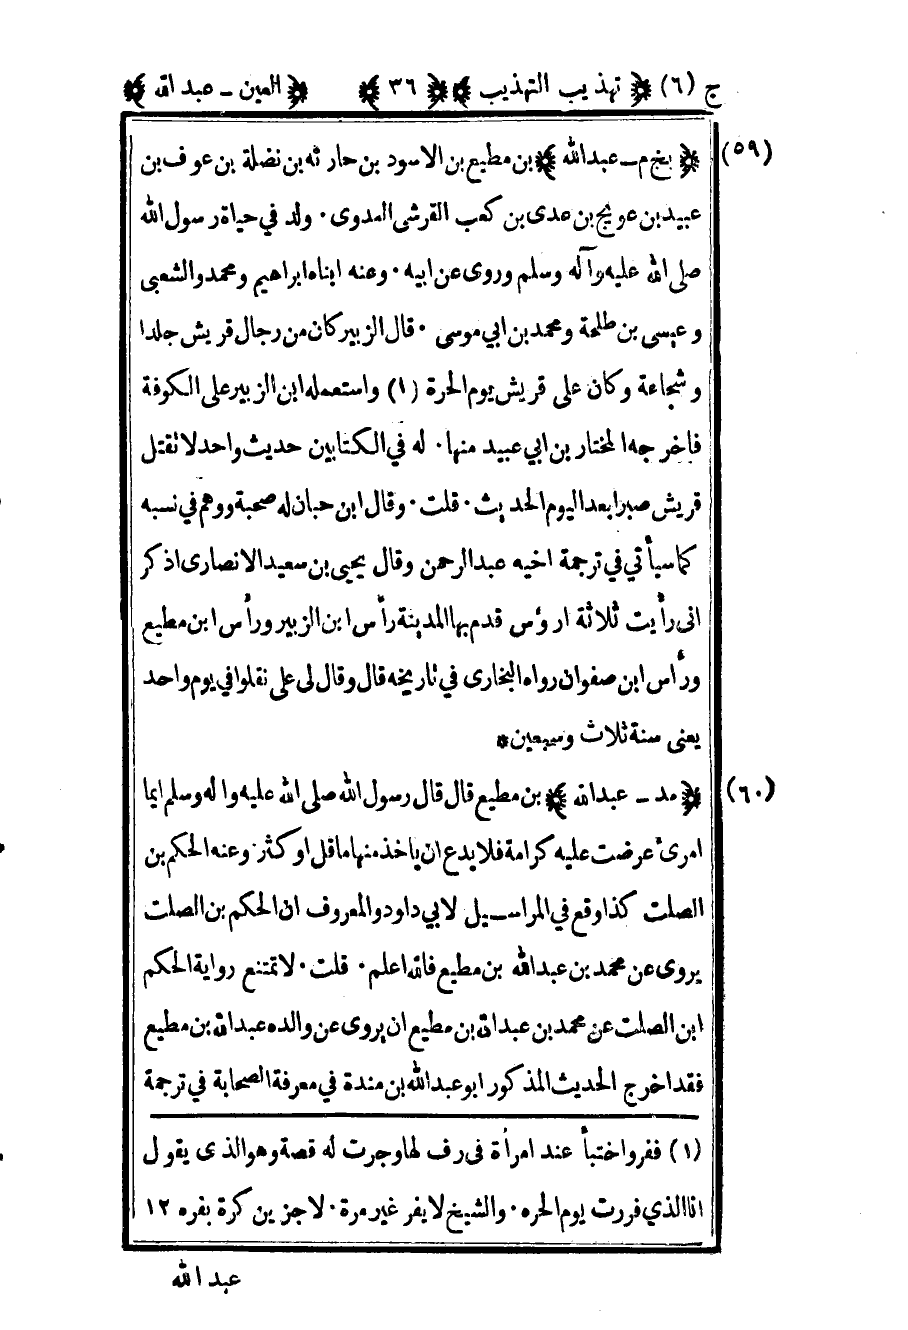 ج (٦) ﴿ تهذيب التهذيب ﴾ ﴿ ٣٦ ﴾ ﴿ العين ـ عبد الله ﴾
(٥٩) ﴿ بخ م ـ عبد الله ﴾ بن مطيع بن الاسود بن حارثه بن نضلة بن عوف بن
عبيد بن عويج بن عدى بن كعب القرشى العدوى · ولد في حياة رسول الله
صلى الله عليه وآله وسلم وروى عن ابيه · وعنه ابناه ابراهيم ومحمد والشعبى
وعيسى بن طلحة ومحمد بن ابي موسى · قال الزبير كان من رجال قريش جلدا
وشجاعة وكان على قريش يوم الحرة (١) واستعمله ابن الزبير على الكوفة
فاخرجه المختار بن ابي عبيد منها · له في الكتابين حديث واحد لا تقتل
قريش صبرا بعد اليوم الحديث · قلت · وقال ابن حبان له صحبة ووهم في نسبه
كما سيأتي في ترجمة اخيه عبد الرحمن وقال يحيى بن سعيد الانصارى اذكر
انى رأيت ثلاثة ارؤس قدم بها المدينة رأس ابن الزبير ورأس ابن مطيع
ورأس ابن صفوان رواه البخارى في تاريخه قال وقال لى على نقلوا في يوم واحد
يعنى سنة ثلاث وسبعين *
(٦٠) ﴿ مد ـ عبد الله ﴾ بن مطيع قال قال رسول الله صلى الله عليه واله وسلم ايما
امرئ عرضت عليه كرامة فلا يدع ان ياخذ منها ما قل او كثر · وعنه الحكم بن
الصلت كذا وقع في المراسيل لابي داود والمعروف ان الحكم بن الصلت
يروى عن محمد بن عبد الله بن مطيع فالله اعلم · قلت · لا تمتنع رواية الحكم
ابن الصلت عن محمد بن عبد الله بن مطيع ان يروى عن والده عبد الله بن مطيع
فقد اخرج الحديث المذكور ابو عبد الله بن مندة في معرفة الصحابة في ترجمة
(١) ففر واختبأ عند امرأة فى رف لها وجرت له قصة وهو الذى يقول
انا الذي فررت يوم الحره · والشيخ لا يفر غير مرة · لا جزين كرة بفره ١٢
عبد الله